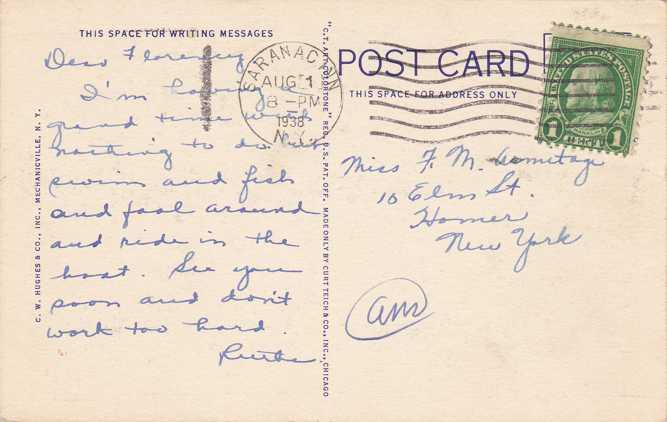 THIS SPACE FOR WRITING MESSAGES
Dear Florence,
I'm having a
grand time with
nothing to do but
swim and fish
and fool around
and ride in the
boat. See you
soon and don't
work too hard.
Ruthe.
C. W. HUGHES & CO., INC., MECHANICVILLE, N. Y.
"C.T. ART-COLORTONE" REG. U.S. PAT. OFF. MADE ONLY BY CURT TEICH & CO., INC., CHICAGO
SARANAC INN
AUG 1
8-PM
1938
N.Y.
POST CARD
THIS SPACE FOR ADDRESS ONLY
UNITED STATES POSTAGE
1 1
Miss F. M. Armitage
10 Elm St.
Homer
New York